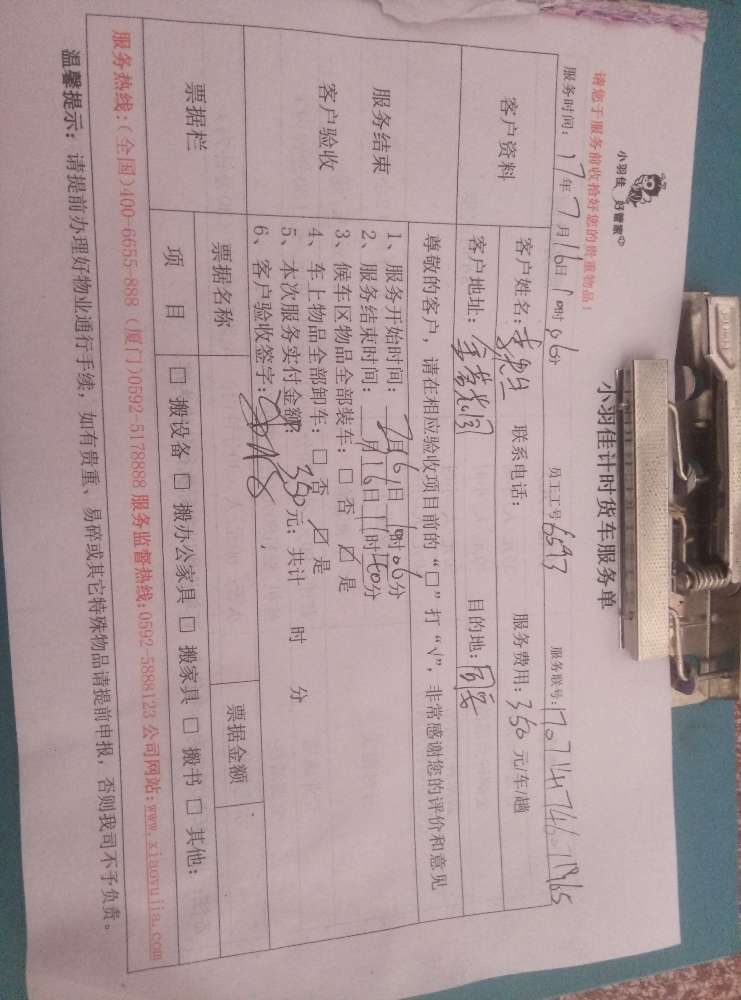 小羽佳 好管家
小羽佳计时货车服务单
请您于服务前收拾好您的贵重物品！
服务时间：17年7月16日 时06分 员工工号6593 服务联号：
客户资料
客户姓名： 联系电话： 服务费用：350元/车/趟
客户地址： 目的地：同安
尊敬的客户，请在相应验收项目前的“□”打“√”，非常感谢您的评价和意见
服务结束
客户验收
1、服务开始时间：7月16日 时06分
2、服务结束时间： 月16日11时40分
3、候车区物品全部装车：□ 否 ☑ 是
4、车上物品全部卸车：□ 否 ☑ 是
5、本次服务实付金额：350元；共计 时 分
6、客户验收签字：
票据栏
票据名称 票据金额
项 目 □ 搬设备 □ 搬办公家具 □ 搬家具 □ 搬书 □ 其他：
服务热线：(全国)400-6655-888 (厦门)0592-5178888 服务监督热线:0592-5888123 公司网站:www.xiaoyujia.com
温馨提示：请提前办理好物业通行手续，如有贵重、易碎或其它特殊物品请提前申报，否则我司不予负责。